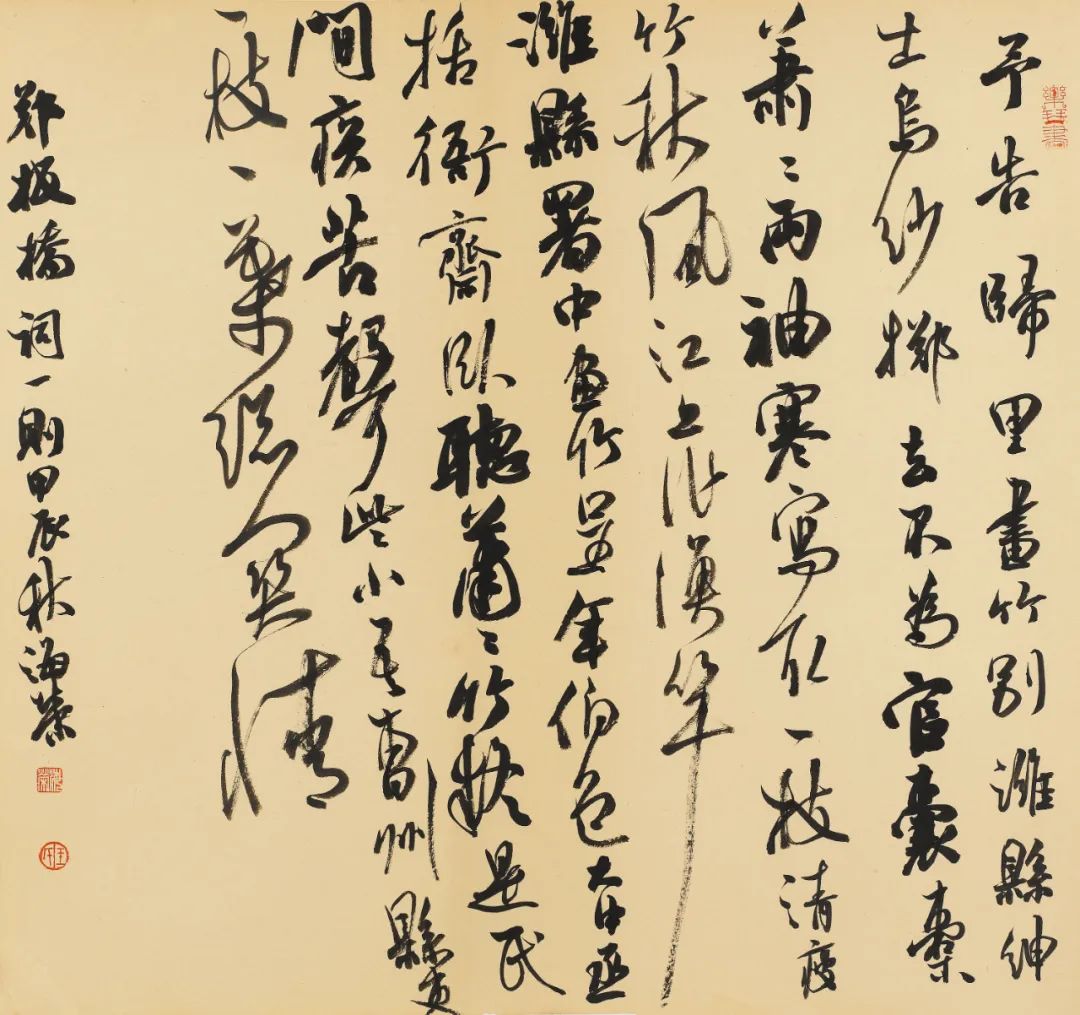 予告歸里畫竹別濰縣紳
士烏紗擲去不為官囊橐
蕭〻兩袖寒寫取一枝清瘦
竹秋風江上作漁竿
濰縣署中畫竹呈年伯包大中丞
括衙齋臥聽蕭〻竹疑是民
間疾苦聲些小吾曹州縣吏
一枝一葉總關情
鄭板橋詞一則甲辰秋海榮
樂琴書